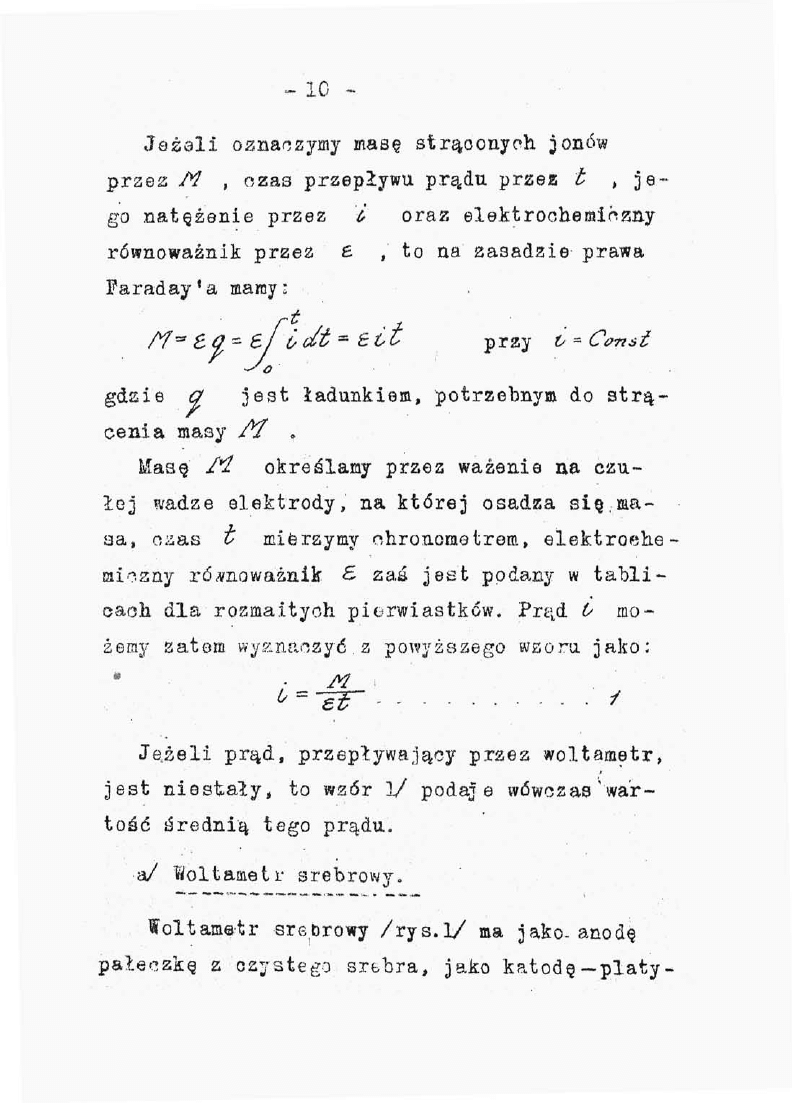 - 10 -
Jeżeli oznaczymy masę strąconych jonów
przez M , czas przepływu prądu przez t , je-
go natężenie przez i oraz elektrochemiczny
równoważnik przez ε , to na zasadzie prawa
Faraday'a mamy:
M = εq = ε∫₀ᵗ i dt = εit przy i = Const
gdzie q jest ładunkiem, potrzebnym do strą-
cenia masy M .
Masę M określamy przez ważenie na czu-
łej wadze elektrody, na której osadza się ma-
sa, czas t mierzymy chronometrem, elektroche-
miczny równoważnik ε zaś jest podany w tabli-
cach dla rozmaitych pierwiastków. Prąd i mo-
żemy zatem wyznaczyć z powyższego wzoru jako:
i = M/εt - - . . . . . . . . . . 1
Jeżeli prąd, przepływający przez woltametr,
jest niestały, to wzór 1/ podaje wówczas war-
tość średnią tego prądu.
a/ Woltametr srebrowy.
Woltametr srebrowy /rys.1/ ma jako anodę
pałeczkę z czystego srebra, jako katodę—platy-